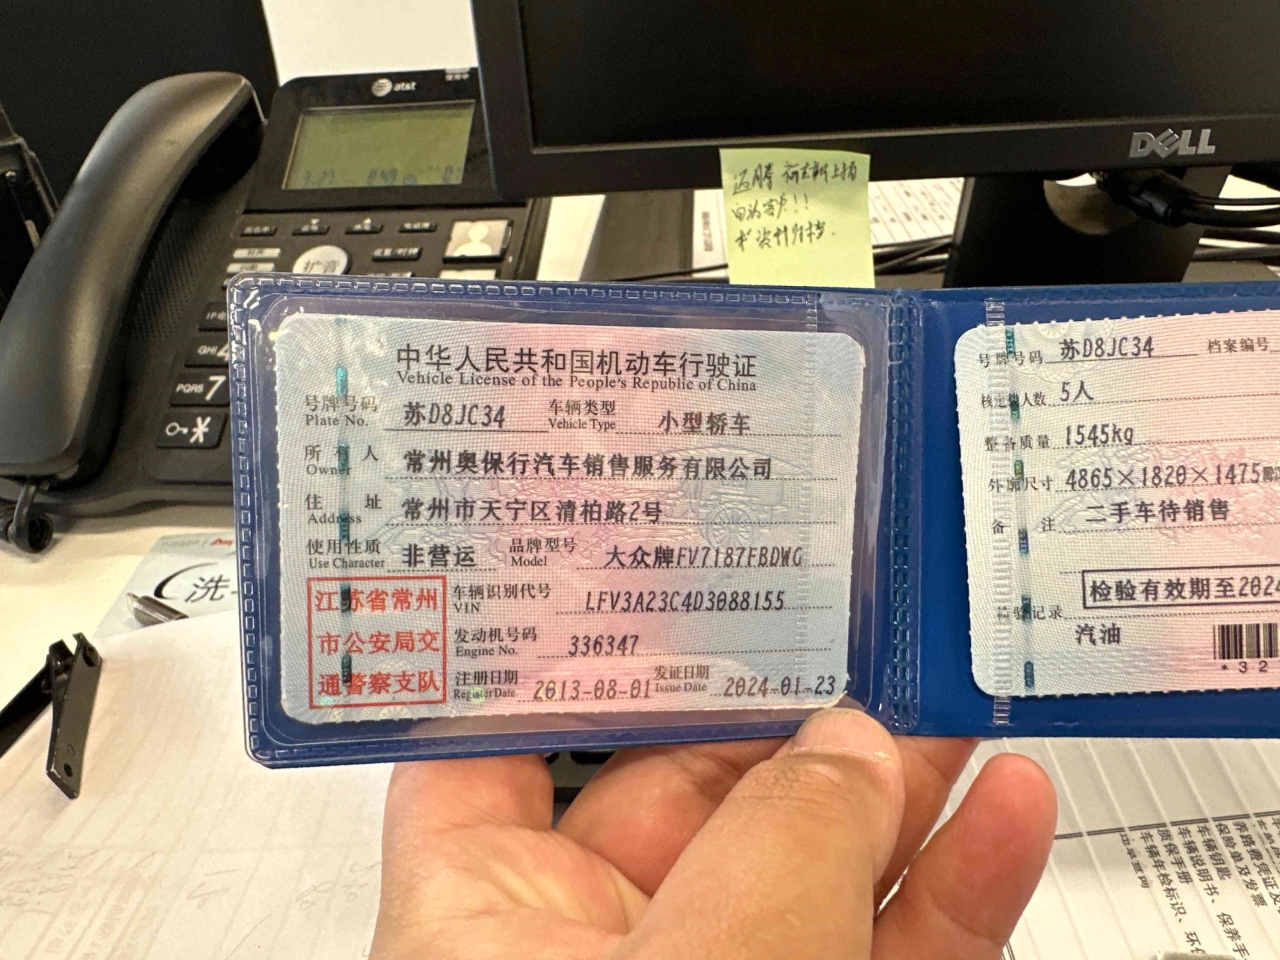 at&t
DELL
迈腾
扩音
GHI 4
PQRS 7
洗
中华人民共和国机动车行驶证
Vehicle License of the People's Republic of China
号牌号码 苏D8JC34 车辆类型 小型轿车
Plate No. Vehicle Type
所有人 常州奥保行汽车销售服务有限公司
Owner
住址 常州市天宁区清柏路2号
Address
使用性质 非营运 品牌型号 大众牌FV7187FBDWG
Use Character Model
江苏省常州
市公安局交
通警察支队
车辆识别代号 LFV3A23C4D3088155
VIN
发动机号码 336347
Engine No.
注册日期 2013-08-01 发证日期 2024-01-23
Register Date Issue Date
号牌号码 苏D8JC34 档案编号
核定载人数 5人
整备质量 1545kg
外廓尺寸 4865×1820×1475
备注 二手车待销售
检验有效期至2024
检验记录
汽油
*32
养路费凭证及
保险单及发票
车辆钥匙
车辆说明书、保养手
质保手册
车辆年检标识、环